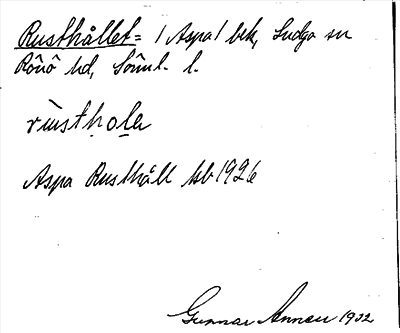 Rusthållet = / Aspa / bek, Ludgo sn
Rönö hd, Söml. l.
rùsthọlɘ
Aspa Rusthåll tsb 1926
Gunnar Annell 1932